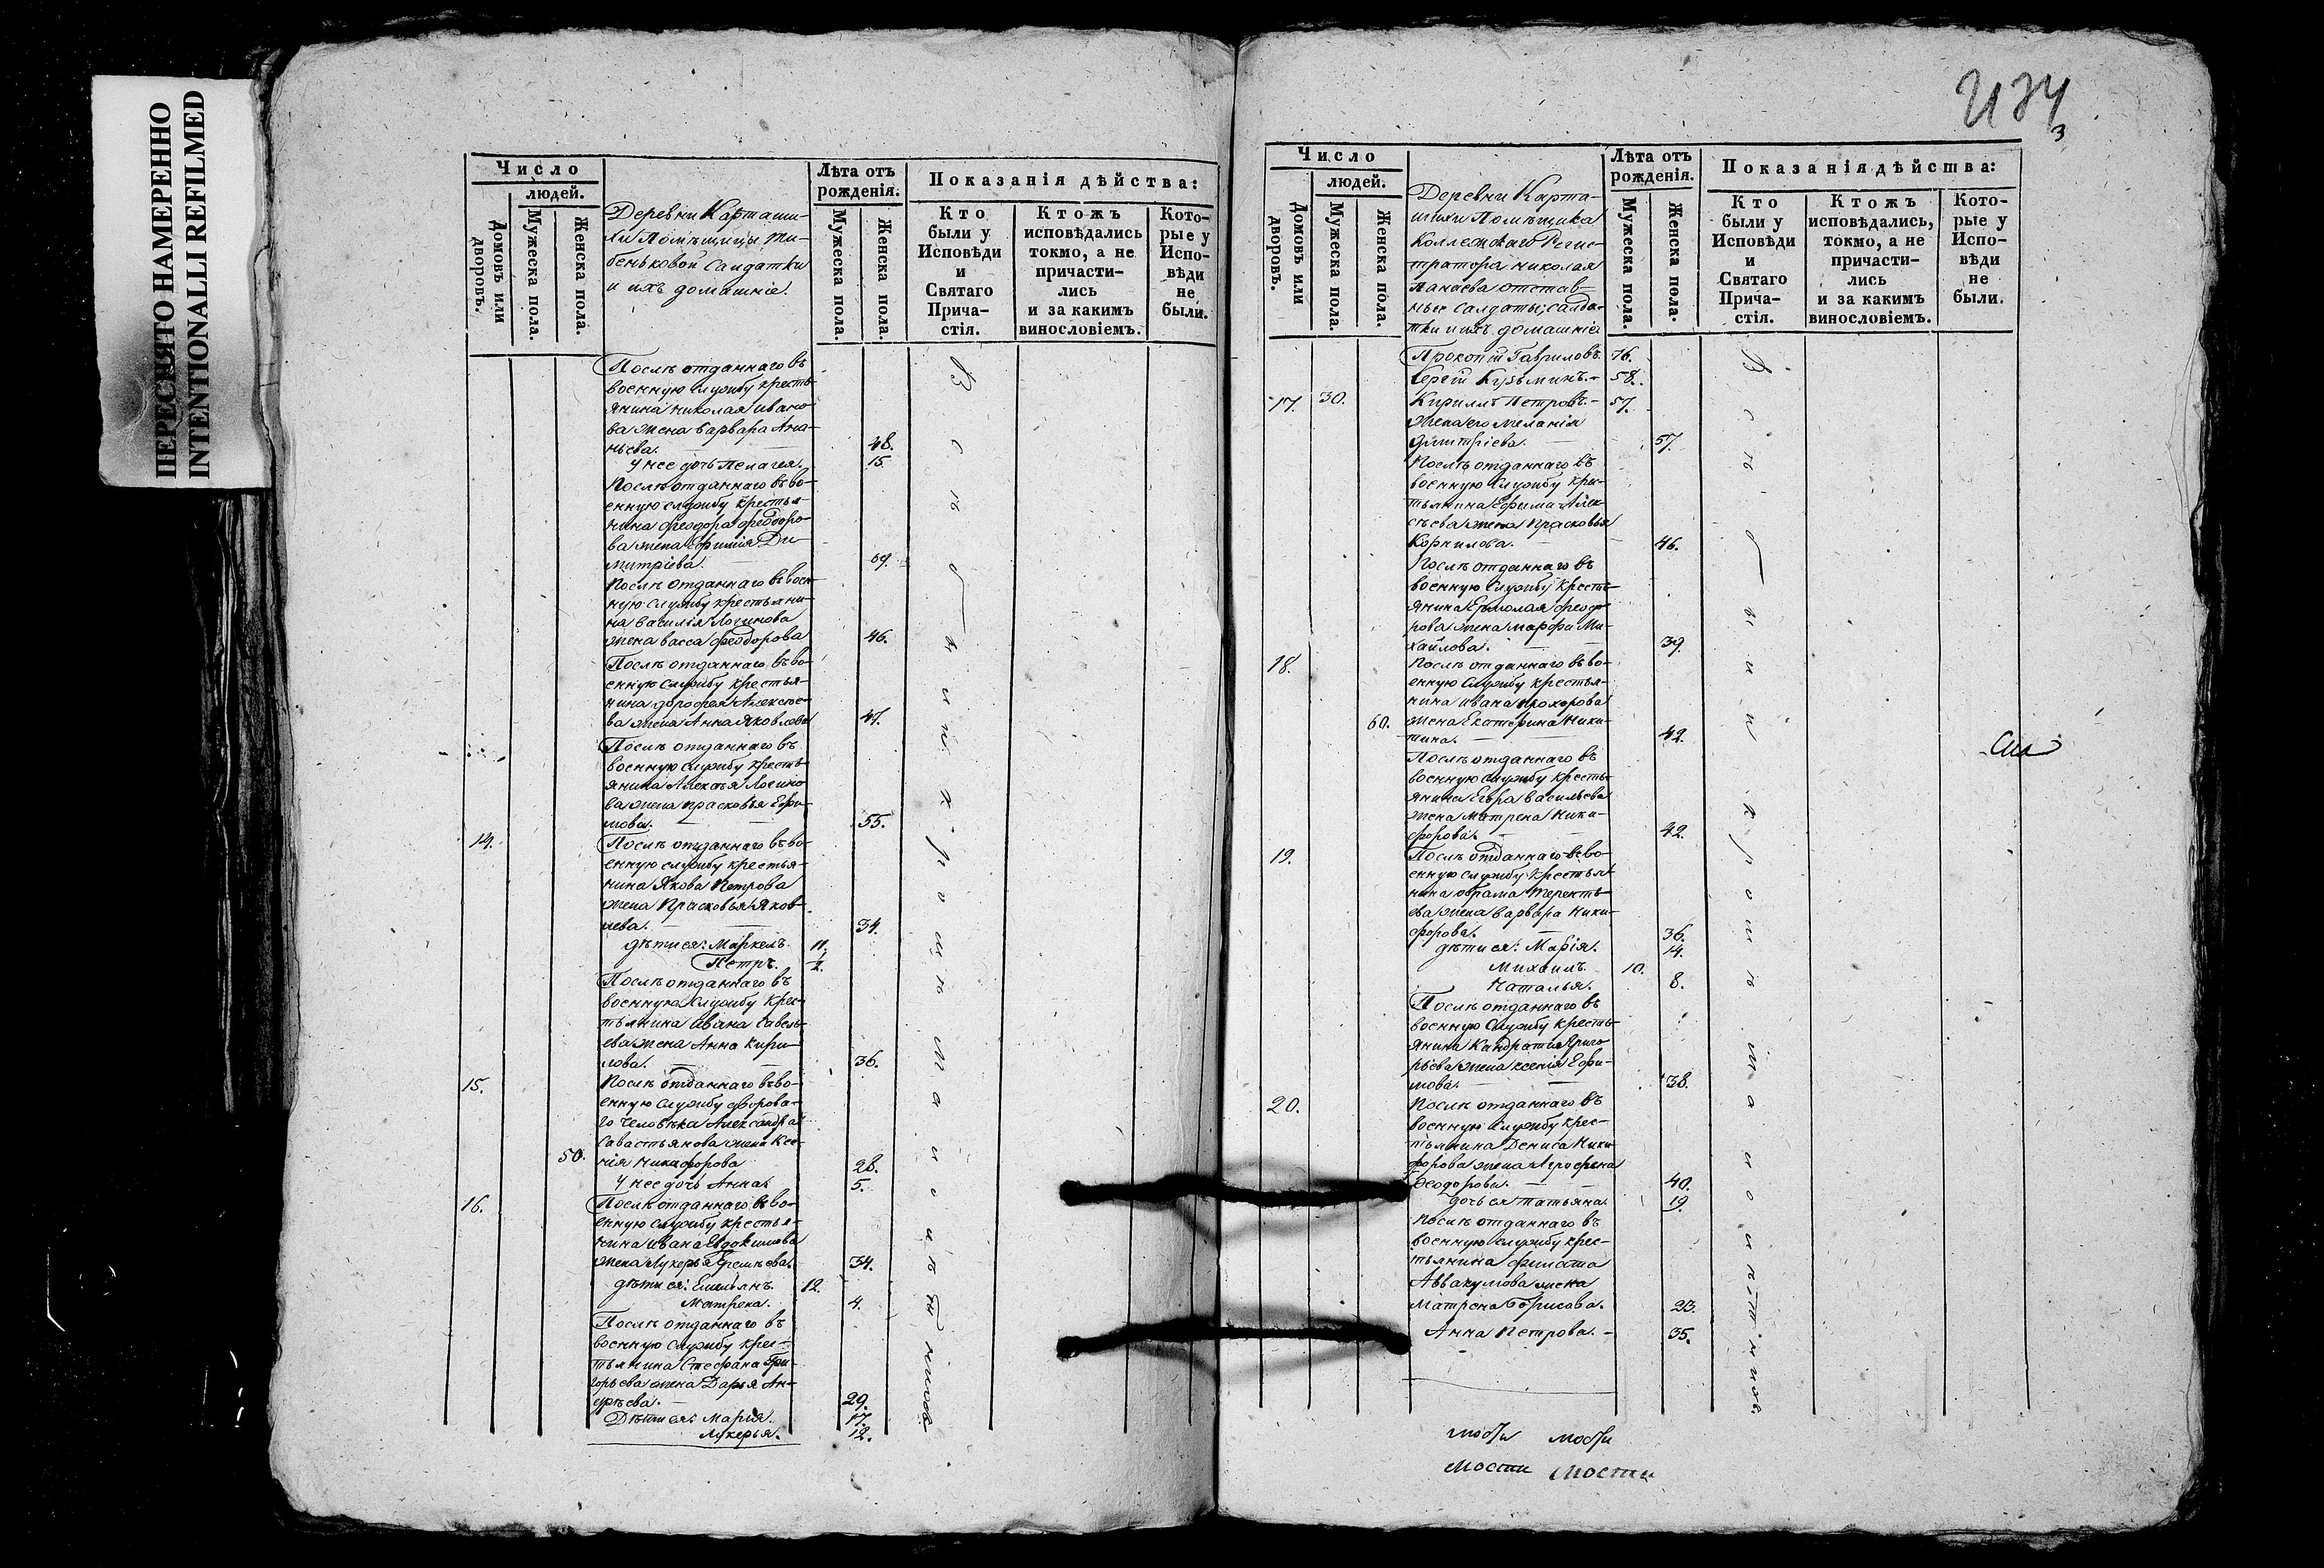 ПЕРЕСНЯТО НАМЕРЕННО
INTENTIONALLI REFILMED
Число
людей.
Домовъ или дворовъ.
Мужеска пола.
Женска пола.
Деревни Карташи-
хи Помѣщицы Ти-
беньковой Салдатки
и ихъ домашніе.
Лѣта отъ
рожденія.
Мужеска пола.
Женска пола.
Показанія дѣйства:
Кто
были у
Исповѣди
и
Святаго
Прича-
стія.
Ктожъ
исповѣдались
токмо, а не
причасти-
лись
и за какимъ
винословіемъ.
Кото-
рые у
Испо-
вѣди
не
были.
Послѣ отданнаго въ
военную службу кресть-
янина Николая Ивано-
ва жена Варвара Ана-
ньева. 48.
У нее дочь Пелагея. 15.
Послѣ отданнаго въ во-
енную службу крестья-
нина Феодора Феодоро-
ва жена Ефимія Ди-
митріева.
Послѣ отданнаго въ воен-
ную службу крестьяни-
на Василія Логинова
жена Васса Феодорова 46.
Послѣ отданнаго въ во-
енную службу крестья-
нина Дорофея Алексѣе-
ва жена Анна Яковлева 47.
Послѣ отданнаго въ
военную службу кресть-
янина Алексѣя Логино-
ва жена Прасковья Ефи-
мова. 55.
14. Послѣ отданнаго въ во-
енную службу крестья-
нина Якова Петрова
жена Прасковья Яков-
лева. 34.
дѣти ея: Маркелъ 11.
Петръ.
Послѣ отданнаго въ
военную службу крес-
тьянина Ивана Савель-
ева жена Анна Кири-
лова. 36.
15. Послѣ отданнаго въ во-
енную службу дворова-
го человѣка Александра
Савастьянова жена Ксе-
50. нія Никифорова 28.
У нее дочь Анна. 5.
16. Послѣ отданнаго въ во-
енную службу крестья-
нина Ивана Евдокимова
жена Лукерья Еремѣева. 34.
дѣти ея: Емельянъ. 12.
Матрена. 4.
Послѣ отданнаго въ
военную службу крес-
тьянина Стефана Гри-
горьева жена Дарья Ан-
29.
Дѣти ея: Марья. 17.
Лукерья. 12.
Всѣ были при своемъ
Число
людей.
Домовъ или дворовъ.
Мужеска пола.
Женска пола.
Деревни Карта-
шихи Помѣщика
Коллежскаго Регис-
тратора Николая
Панаева отстав-
ные салдаты, салда-
тки и ихъ домашніе
Лѣта отъ
рожденія.
Мужеска пола.
Женска пола.
Показанія дѣйства:
Кто
были у
Исповѣди
и
Святаго
Прича-
стія.
Ктожъ
исповѣдались,
токмо, а не
причасти-
лись
и за какимъ
винословіемъ.
Кото-
рые у
Испо-
вѣди
не
были.
Прокопій Гавриловъ. 76.
Сергій Кузьминъ. 58.
17. 30. Кириллъ Петровъ. 57.
жена его Меланія
Димитріева. 57.
Послѣ отданнаго въ
военную службу крес-
тьянина Ефима Алек-
сѣева жена Прасковья
Корнилова. 46.
Послѣ отданнаго въ
военную службу кресть-
янина Ермолая Феодо-
рова жена Марфа Ми-
хайлова. 39.
18. Послѣ отданнаго въ во-
енную службу крестья-
нина Ивана Прохорова
60. жена Екатерина Ники-
тина. 42.
Послѣ отданнаго въ
военную службу кресть-
янина Егора Васильева
жена Матрена Ники-
форова. 42.
19. Послѣ отданнаго въ во-
енную службу крестья-
нина Абрама Теренть-
ева жена Варвара Ники-
форова. 36.
дѣти ея: Марія. 14.
Михаилъ. 10.
Наталья. 8.
Послѣ отданнаго въ
военную службу кресть-
янина Кандратія Григо-
рьева жена Ксенія Ефи-
мова. 38.
20. Послѣ отданнаго въ
военную службу крес-
тьянина Дениса Ники-
форова жена Агрофена
Феодорова. 40.
дочь ея Татьяна. 19.
Послѣ отданнаго въ
военную службу крес-
тьянина Филата
Аввакумова жена
Матрена Борисова. 23.
Анна Петрова. 35.
Мости Мости